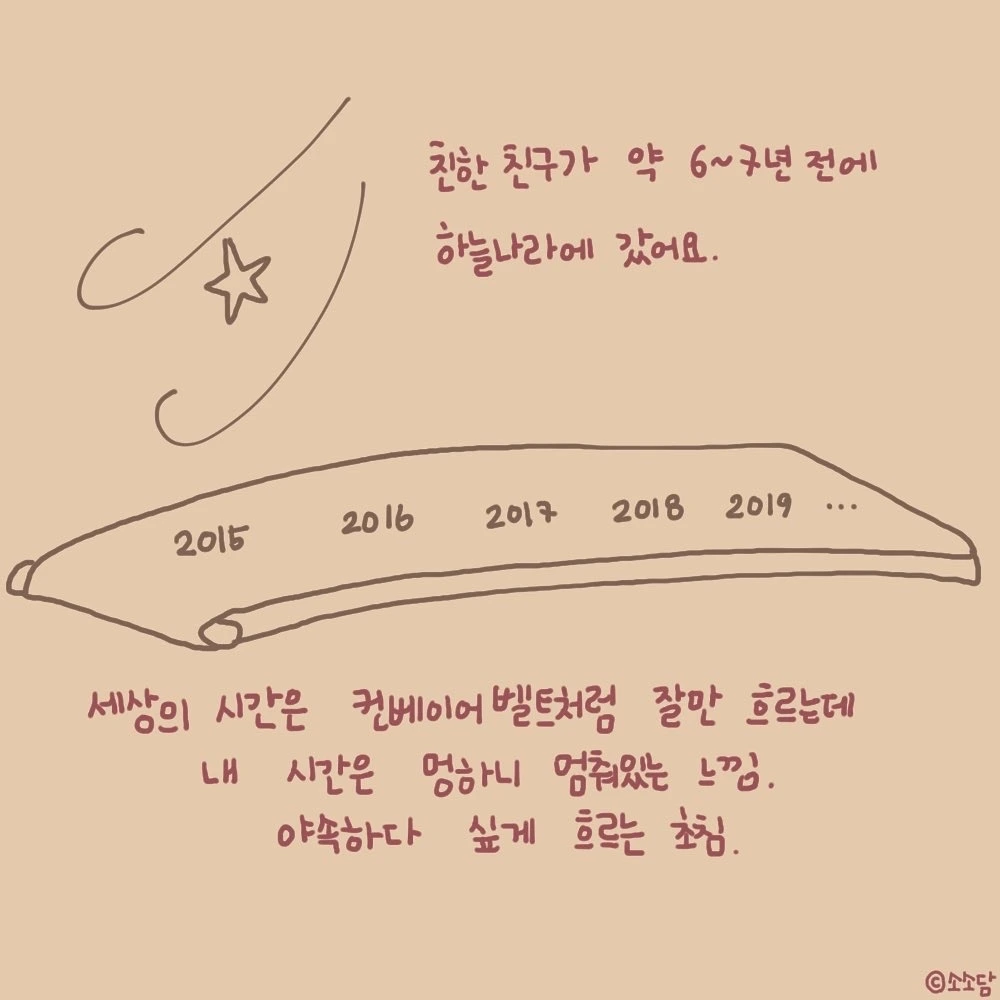 친한 친구가 약 6~7년 전에
하늘나라에 갔어요.
2015 2016 2017 2018 2019 ...
세상의 시간은 컨베이어벨트처럼 잘만 흐르는데
내 시간은 멍하니 멈춰있는 느낌.
야속하다 싶게 흐르는 초침.
©소소담